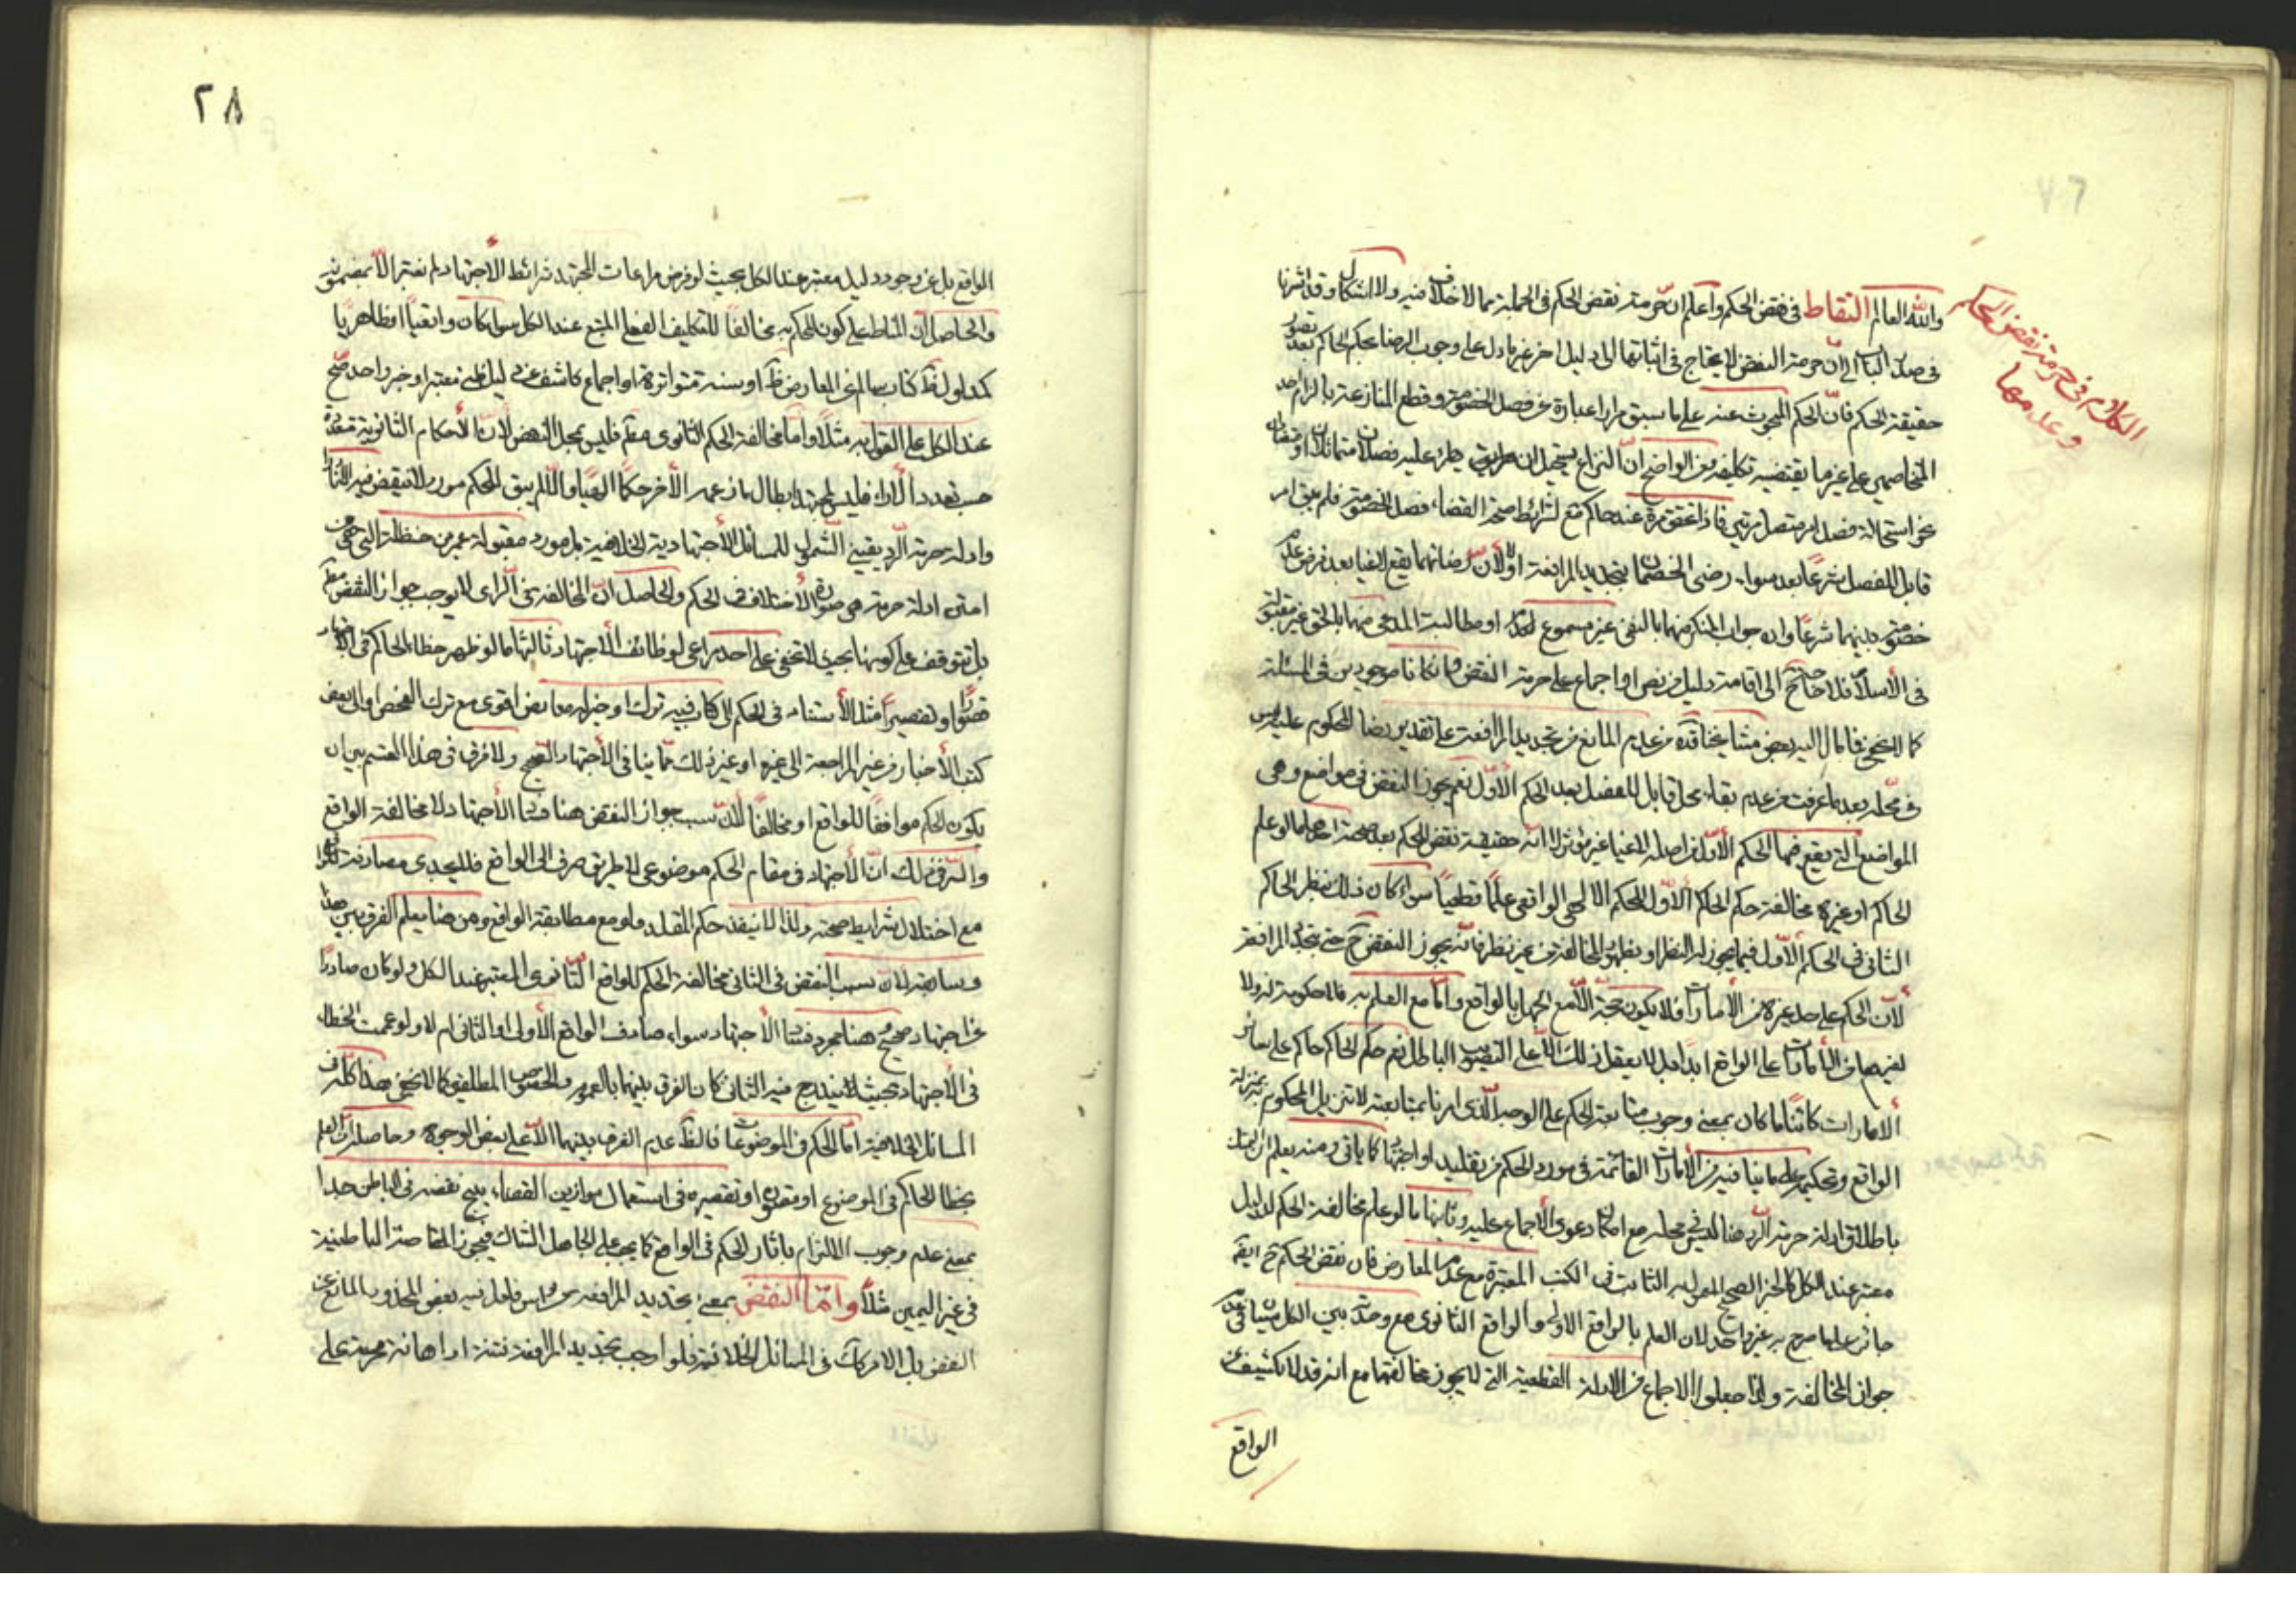 الكلام فى حرمة نقض الحكم
وعدمها
والله العالم التقاط فى نقض الحكم واعلم ان حرمة نقض الحكم فى الجملة مما لا خلاف فيه ولا اشكال وقد اشرنا
فى صدر الباب الى ان حرمة النقض لا يحتاج فى اثباتها الى دليل اخر غير ما دل على وجوب الرضا بحكم الحاكم بعد تصور
حقيقة الحكم فان الحكم المبحوث عنه على ما سبق مرارا عبارة عن فصل الخصومة وقطع المنازعة بالزام احد
المتخاصمين على غير ما يقتضيه تكليفه ومن الواضح ان النزاع يستحيل ان يطرء عليه فصلان متماثلان او
نحو استحالة فصل امر متصل مرتين فاذا تحقق مرة عند حاكم مع شرائط صحة القضاء فصل الخصومة فلم يبق امر
قابل للفصل شرعا بعد سواء رضى الخصمان بتجديد المرافعة اولا لان رضائهما يقع لاغيا بعد فرض عدم
خصومة بينهما شرعا وان جواب المنكر منهما بالنفى غير مسموع او مطالبة المدعى منهما بالحق غير مقبولة
فى الاسلام فلا حاجة ح الى اقامة دليل من نص او اجماع على حرمة النقض وان كانا موجودين فى المسئلة
كما لا يخفى فما مال اليه بعض مشايخنا قده من عدم المانع من تجديد المرافعة على تقدير رضا المحكوم عليه ليس
فى محله بعد ما عرفت من عدم بقاء محل قابل للفصل بعد الحكم الاول نعم يجوز النقض فى مواضع وهى
المواضع التى يقع فيها الحكم الاول من اصله لاغيا غير مؤثر لا انه حقيقة نقض للحكم بعد صحة احدها ما لو علم
الحاكم او غيره مخالفة حكم الحاكم الاول للحكم الالهى الواقعى علما قطعيا سواء كان ذلك بنظر الحاكم
الثانى فى الحكم الاول فيما يجوز له النظر او بظهور المخالفة من غير نظر فانه يجوز النقض ح حتى بتجديد المرافعة
لان الحكم على حد غيره من الامارات فلا يكون حجة الا مع الجهل بالواقع واما مع العلم به فلا حكومة له ولا
لغيره من الامارات على الواقع ابدا بل لا يعقل ذلك الا على التصويب الباطل نعم حكم الحاكم حاكم على سائر
الامارات كائنا ما كان بمعنى وجوب متابعة الحكم على الوجه الذى امرنا بمتابعته لا تنزيل المحكوم به بمنزلة
الواقع وتحكيمه على ما ينافيه من الامارات القائمة فى مورد الحكم من تقليد او اجتهاد كما ياتى ومنه يعلم ان التمسك
باطلاق ادلة حرمة الرد هنا ليس فى محله مع امكان دعوى الاجماع عليه وثانيها ما لو علم مخالفة الحكم لدليل
معتبر عند الكل كالخبر الصحيح المعمول به الثابت فى الكتب المعتبرة مع عدم المعارض فان نقض الحكم ح ايضا
جائز على ما صرح به غير واحد لان العلم بالواقع الاولى والواقع الثانوى مع وحدته بين الكل سيان فى عدم
جواز المخالفة ولذا جعلوا الاجماع من الادلة القطعية التى لا يجوز مخالفتها مع انه قد لا يكشف عن
الواقع
٢٨
الواقع بل عن وجود دليل معتبر عند الكل بحيث لو فرض مراعات المجتهد شرائط الاجتهاد لم يفت الا بمضمونه
والحاصل ان المناط على كون الحكم به مخالفا للتكليف الفعلى المتبع عند الكل سواء كان واقعيا او ظاهريا
كمدلول ظ كتاب سالم عن المعارض او سنة متواترة او اجماع كاشف عن دليل ظنى معتبر او خبر واحد صح
عند الكل على القول به مثلا واما مخالفة الحكم الثانوى مطلقا فليس بمحل النقض لان الاحكام الثانوية متعددة
حسب تعدد الاراء فليس لمجتهد ابطال ما زعمه الاخر حكما الهيا والا لم يبق للحكم مورد لا ينتقض فيه
وادلة حرمة الرد يقينى الشمول للمسائل الاجتهادية الخلافية بل مورد مقبولة عمر بن حنظلة التى هى من
امتن ادلة حرمته هى صورة الاختلاف فى الحكم والحاصل ان المخالفة فى الراى لا يوجب جواز النقض مطلقا
بل تتوقف على كونها بحيث لا تخفى على احد مراعى لوظائف الاجتهاد ثالثها ما لو ظهر خطاء الحاكم فى الاجتهاد
قصورا او تقصيرا مثل الاستناد فى الحكم الى كتاب فيه ترك او خبر له معارض اقوى مع ترك الفحص او الى بعض
كتب الاخبار من غير المراجعة الى غيره او غير ذلك مما ينافى الاجتهاد الصحيح ولا فرق فى هذا القسم بين ان
يكون الحكم موافقا للواقع او مخالفا لان سبب جواز النقض هنا فساد الاجتهاد لا مخالفة الواقع
والسر فى ذلك ان الاجتهاد فى مقام الحكم موضوعى لا طريق صرف الى الواقع فلا يجدى مصادفة
مع اختلال شرايط صحته ولذا لا ينفذ حكم المقلد ولو مع مطابقة الواقع ومن هنا يعلم الفرق بين هذا
وسابقه لان سبب النقض فى الثانى مخالفة الحكم للواقع الثانوى المعتبر عند الكل ولو كان صادرا
عن اجتهاد صحيح وهنا مجرد فساد الاجتهاد سواء صادف الواقع الاول او الثانى ام لا ولو عممت الخطاء
فى الاجتهاد بحيث يندرج فيه الثانى كان الفرق بينهما بالعموم والخصوص المطلق كما لا يخفى هذا كله فى
المسائل الخلافية اما الحكم فى الموضوعات فالظ عدم الفرق بينهما الا على بعض الوجوه وحاصله ان العلم
بخطا الحاكم فى الموضوع او قصوره او تقصيره فى استعمال موازين القضاء يبيح نقضه فى الباطن جدا
بمعنى عدم وجوب الالتزام باثار الحكم فى الواقع كما يجب على الجاهل الشاك فيجوز المقاصة الباطنية
فى غير اليمين مثلا واما النقض بمعنى تجديد المرافعة فلعل فيه بعض المحذور المانع عن
النقض بل الامر كك فى المسائل الخلافية فلو اوجب تجديد المرافعة فتنة او اهانة محرمة على